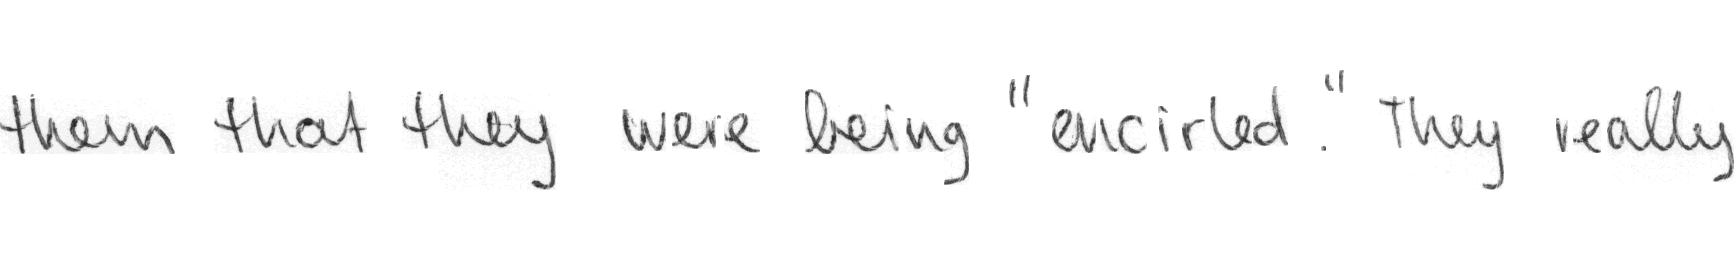 them that they were being "encirled." They really